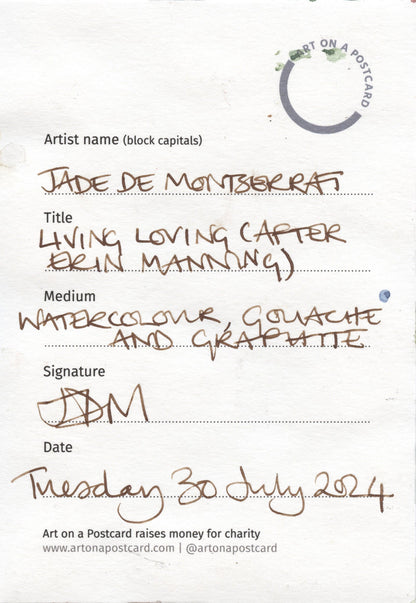 ART ON A POSTCARD
Artist name (block capitals)
JADE DE MONTSERRAT
Title
LIVING LOVING (AFTER
ERIN MANNING)
Medium
WATERCOLOUR, GOUACHE
AND GRAPHITE
Signature
JDM
Date
Tuesday 30 July 2024
Art on a Postcard raises money for charity
www.artonapostcard.com | @artonapostcard